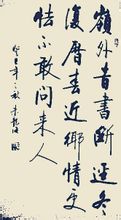 嶺外音書斷經冬
復歷春近鄉情更
怯不敢問來人
癸巳年